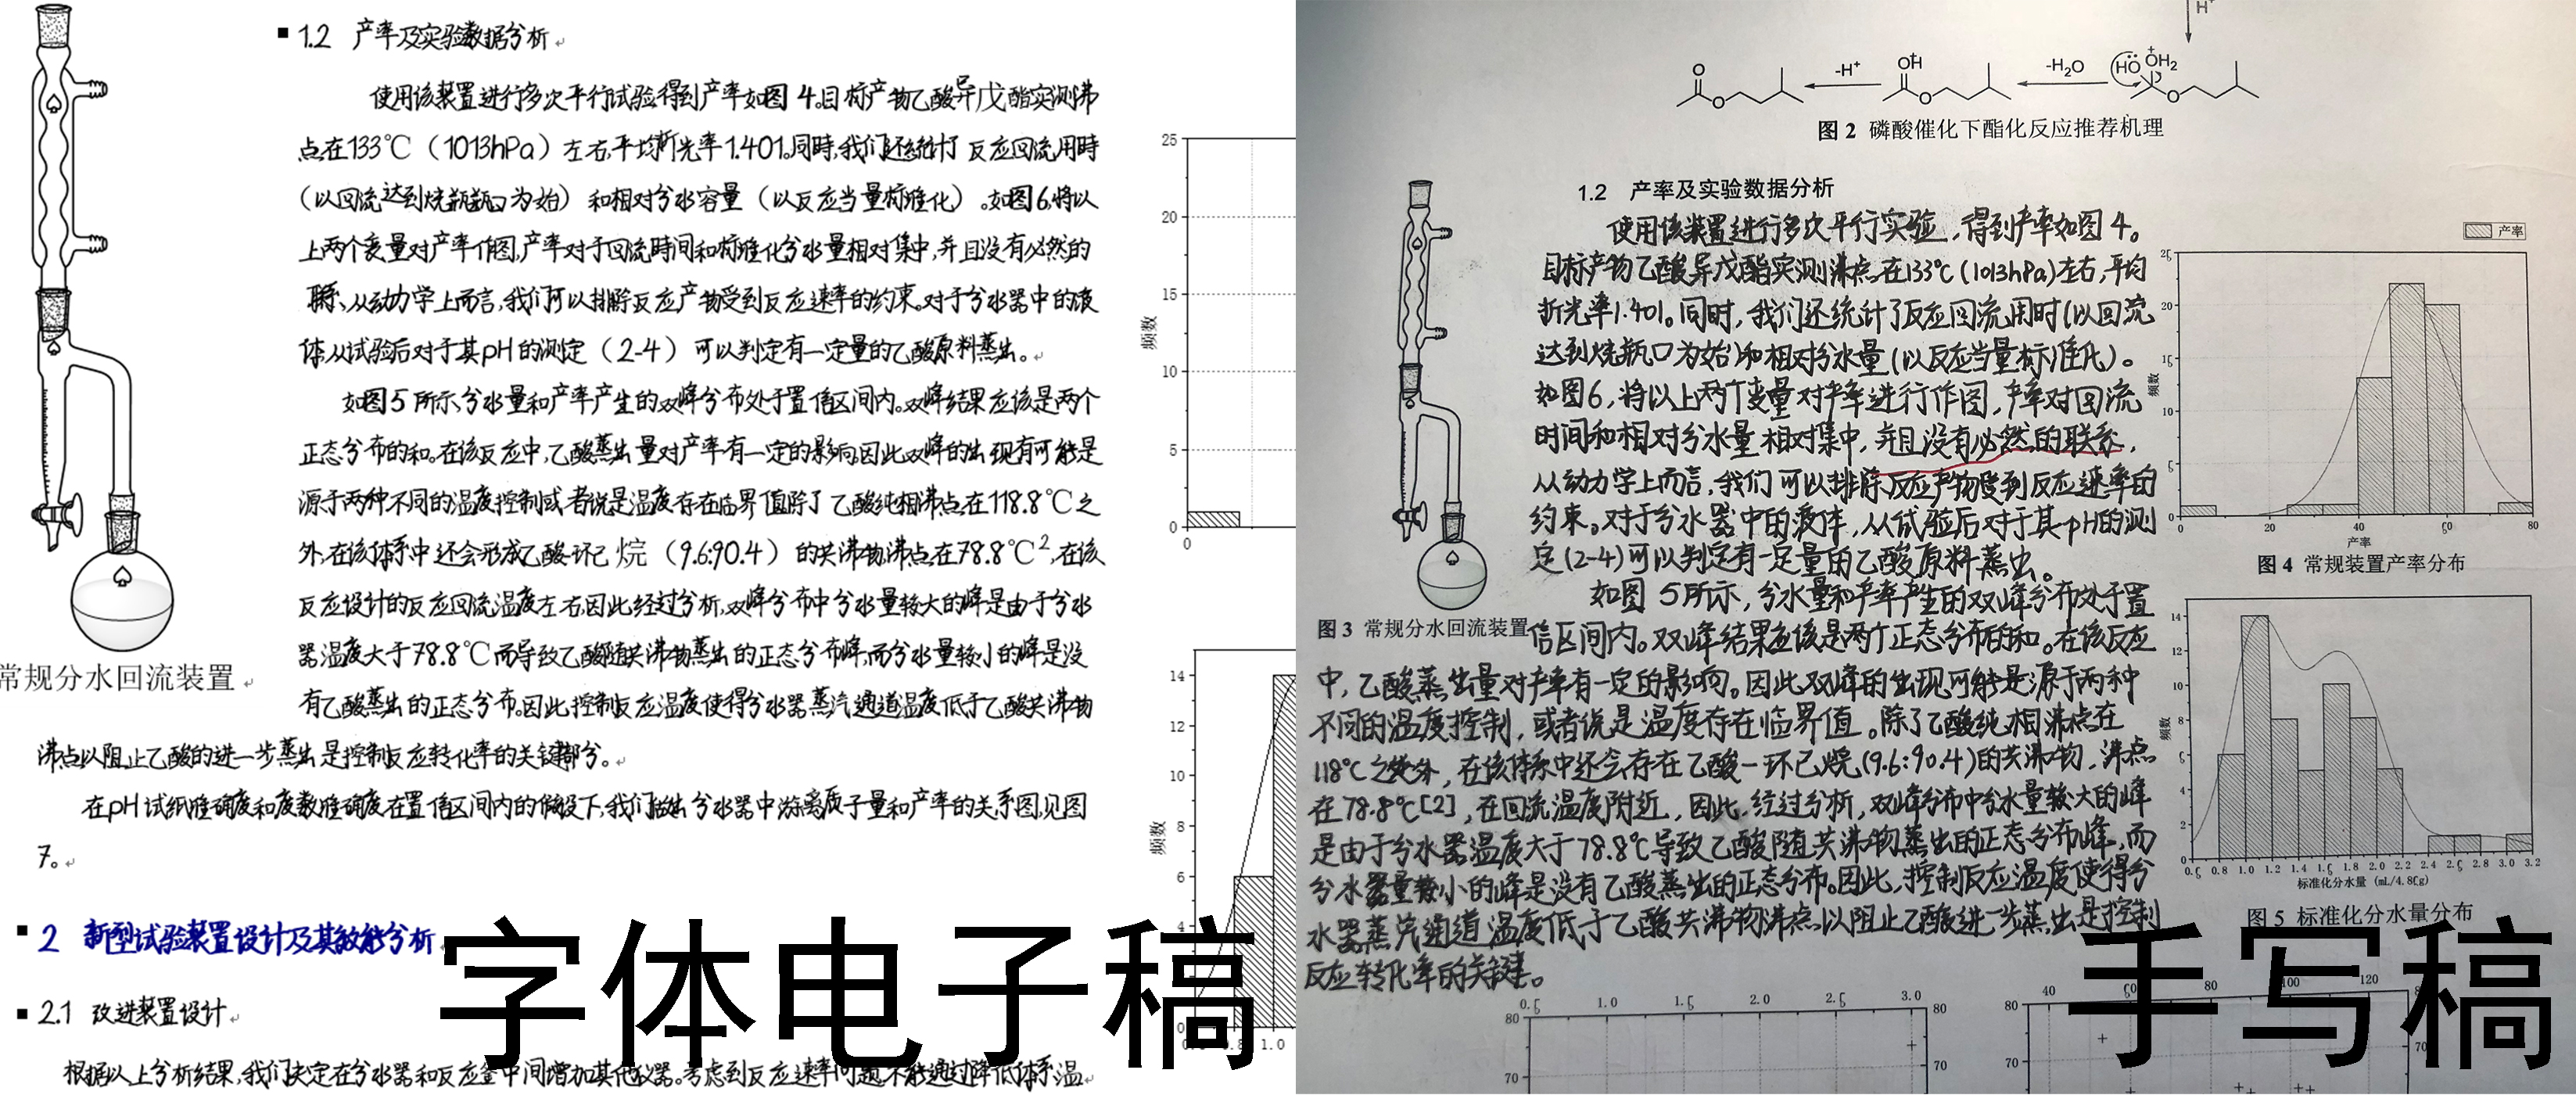 1.2 产率及实验数据分析
使用该装置进行多次平行试验得到产率如图 4。目标产物乙酸异戊酯实测沸
点在133℃（1013hPa）左右,平均折光率1.401。同时,我们还统计了反应回流用时
（以回流达到烧瓶瓶口为始）和相对分水容量（以反应当量标准化）。如图6,将以
上两个变量对产率作图,产率对于回流时间和标准化分水量相对集中,并且没有必然的
联系、从动力学上而言,我们可以排除反应产物受到反应速率的约束。对于分水器中的液
体,从试验后对于其pH的测定（2-4）可以判定有一定量的乙酸原料蒸出。
如图5所示、分水量和产率产生的双峰分布处于置信区间内。双峰结果应该是两个
正态分布的和。在该反应中,乙酸蒸出量对产率有一定的影响,因此双峰的出现有可能是
源于两种不同的温度控制或者说是温度存在临界值除了乙酸纯相沸点在118.8℃之
外,在该体系中还会形成乙酸-环己烷（9.6:90.4）的共沸物,沸点在78.8℃2,在该
反应设计的反应回流温度左右,因此经过分析,双峰分布中分水量较大的峰是由于分水
器温度大于78.8℃而导致乙酸随共沸物蒸出的正态分布峰,而分水量较小的峰是没
有乙酸蒸出的正态分布。因此,控制反应温度使得分水器蒸汽通道温度低于乙酸共沸物
沸点以阻止乙酸的进一步蒸出是控制反应转化率的关键部分。
在pH试纸准确度和度数准确度在置信区间内的假设下,我们做出分水器中游离质子量和产率的关系图,见图
7。
常规分水回流装置
2 新型试验装置设计及其效能分析
2.1 改进装置设计
根据以上分析结果,我们决定在分水器和反应釜中间增加其他仪器。考虑到反应速率问题,不能通过降低体系温
25
20
15
10
5
0
0
频数
14
12
10
8
6
4
频数
1.0
字体电子稿
H+
-H+
-H2O
OH
HO
OH2
O
O
O
O
图 2 磷酸催化下酯化反应推荐机理
1.2 产率及实验数据分析
使用该装置进行多次平行实验,得到产率如图 4。
目标产物乙酸异戊酯实测沸点在133℃(1013hPa)左右,平均
折光率1.401。同时,我们还统计了反应回流用时(以回流
达到烧瓶口为始)和相对分水量(以反应当量标准化)。
如图6,将以上两个变量对产率进行作图,产率对回流
时间和相对分水量相对集中,并且没有必然的联系,
从动力学上而言,我们可以排除反应产物受到反应速率的
约束。对于分水器中的液体,从试验后对于其pH的测
定(2-4)可以判定有一定量的乙酸原料蒸出。
如图 5所示,分水量和产率产生的双峰分布处于置
信区间内。双峰结果应该是两个正态分布的和。在该反应
中,乙酸蒸出量对产率有一定的影响。因此双峰的出现可能是源于两种
不同的温度控制,或者说是温度存在临界值。除了乙酸纯相沸点在
118℃之外,在该体系中还会存在乙酸-环己烷(9.6:90.4)的共沸物,沸点
在78.8℃[2],在回流温度附近,因此,经过分析,双峰分布中分水量较大的峰
是由于分水器温度大于78.8℃导致乙酸随共沸物蒸出的正态分布峰,而
分水量较小的峰是没有乙酸蒸出的正态分布。因此,控制反应温度使得分
水器蒸汽通道温度低于乙酸共沸物沸点以阻止乙酸进一步蒸出是控制
反应转化率的关键。
图 3 常规分水回流装置
产率
25
20
15
10
5
0
频数
0 20 40 60 80
产率
图 4 常规装置产率分布
14
12
10
8
6
4
2
0
频数
0.6 0.8 1.0 1.2 1.4 1.6 1.8 2.0 2.2 2.4 2.6 2.8 3.0 3.2
标准化分水量 (mL/4.80g)
图 5 标准化分水量分布
0.5 1.0 1.5 2.0 2.5 3.0
80 80
70 70
40 60 100 120
80
70 70
手写稿